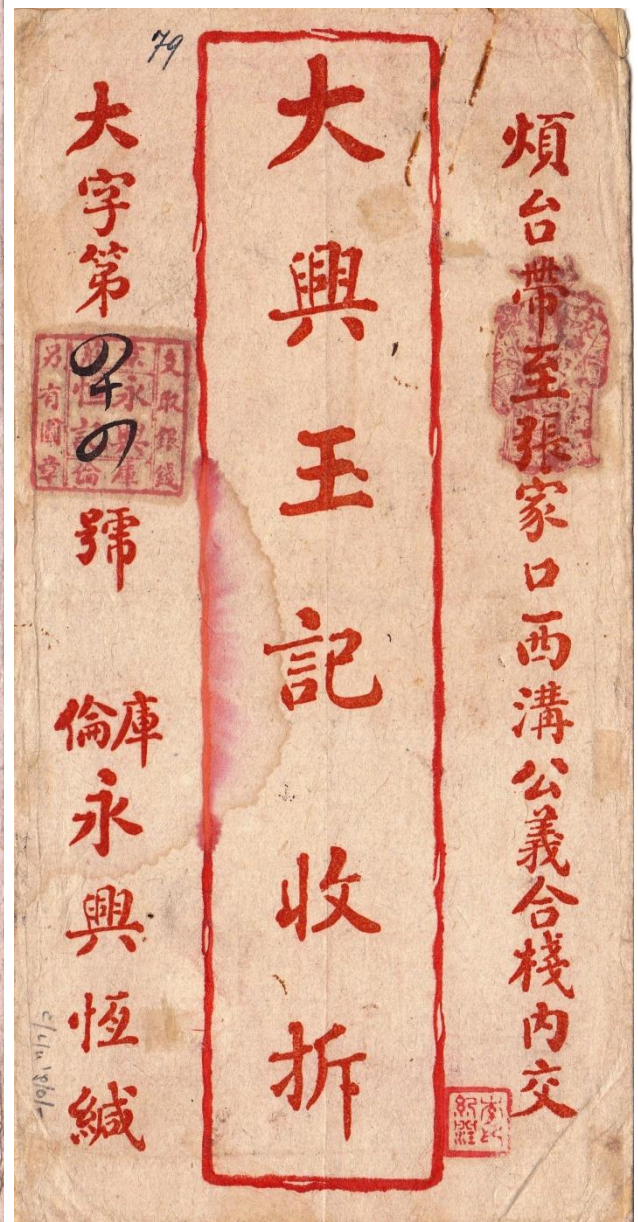 79
煩台帶至張家口西溝公義合棧內交
大興王記收拆
大字第四十四號
庫倫永興恆緘
支取銀錢
另有圖章